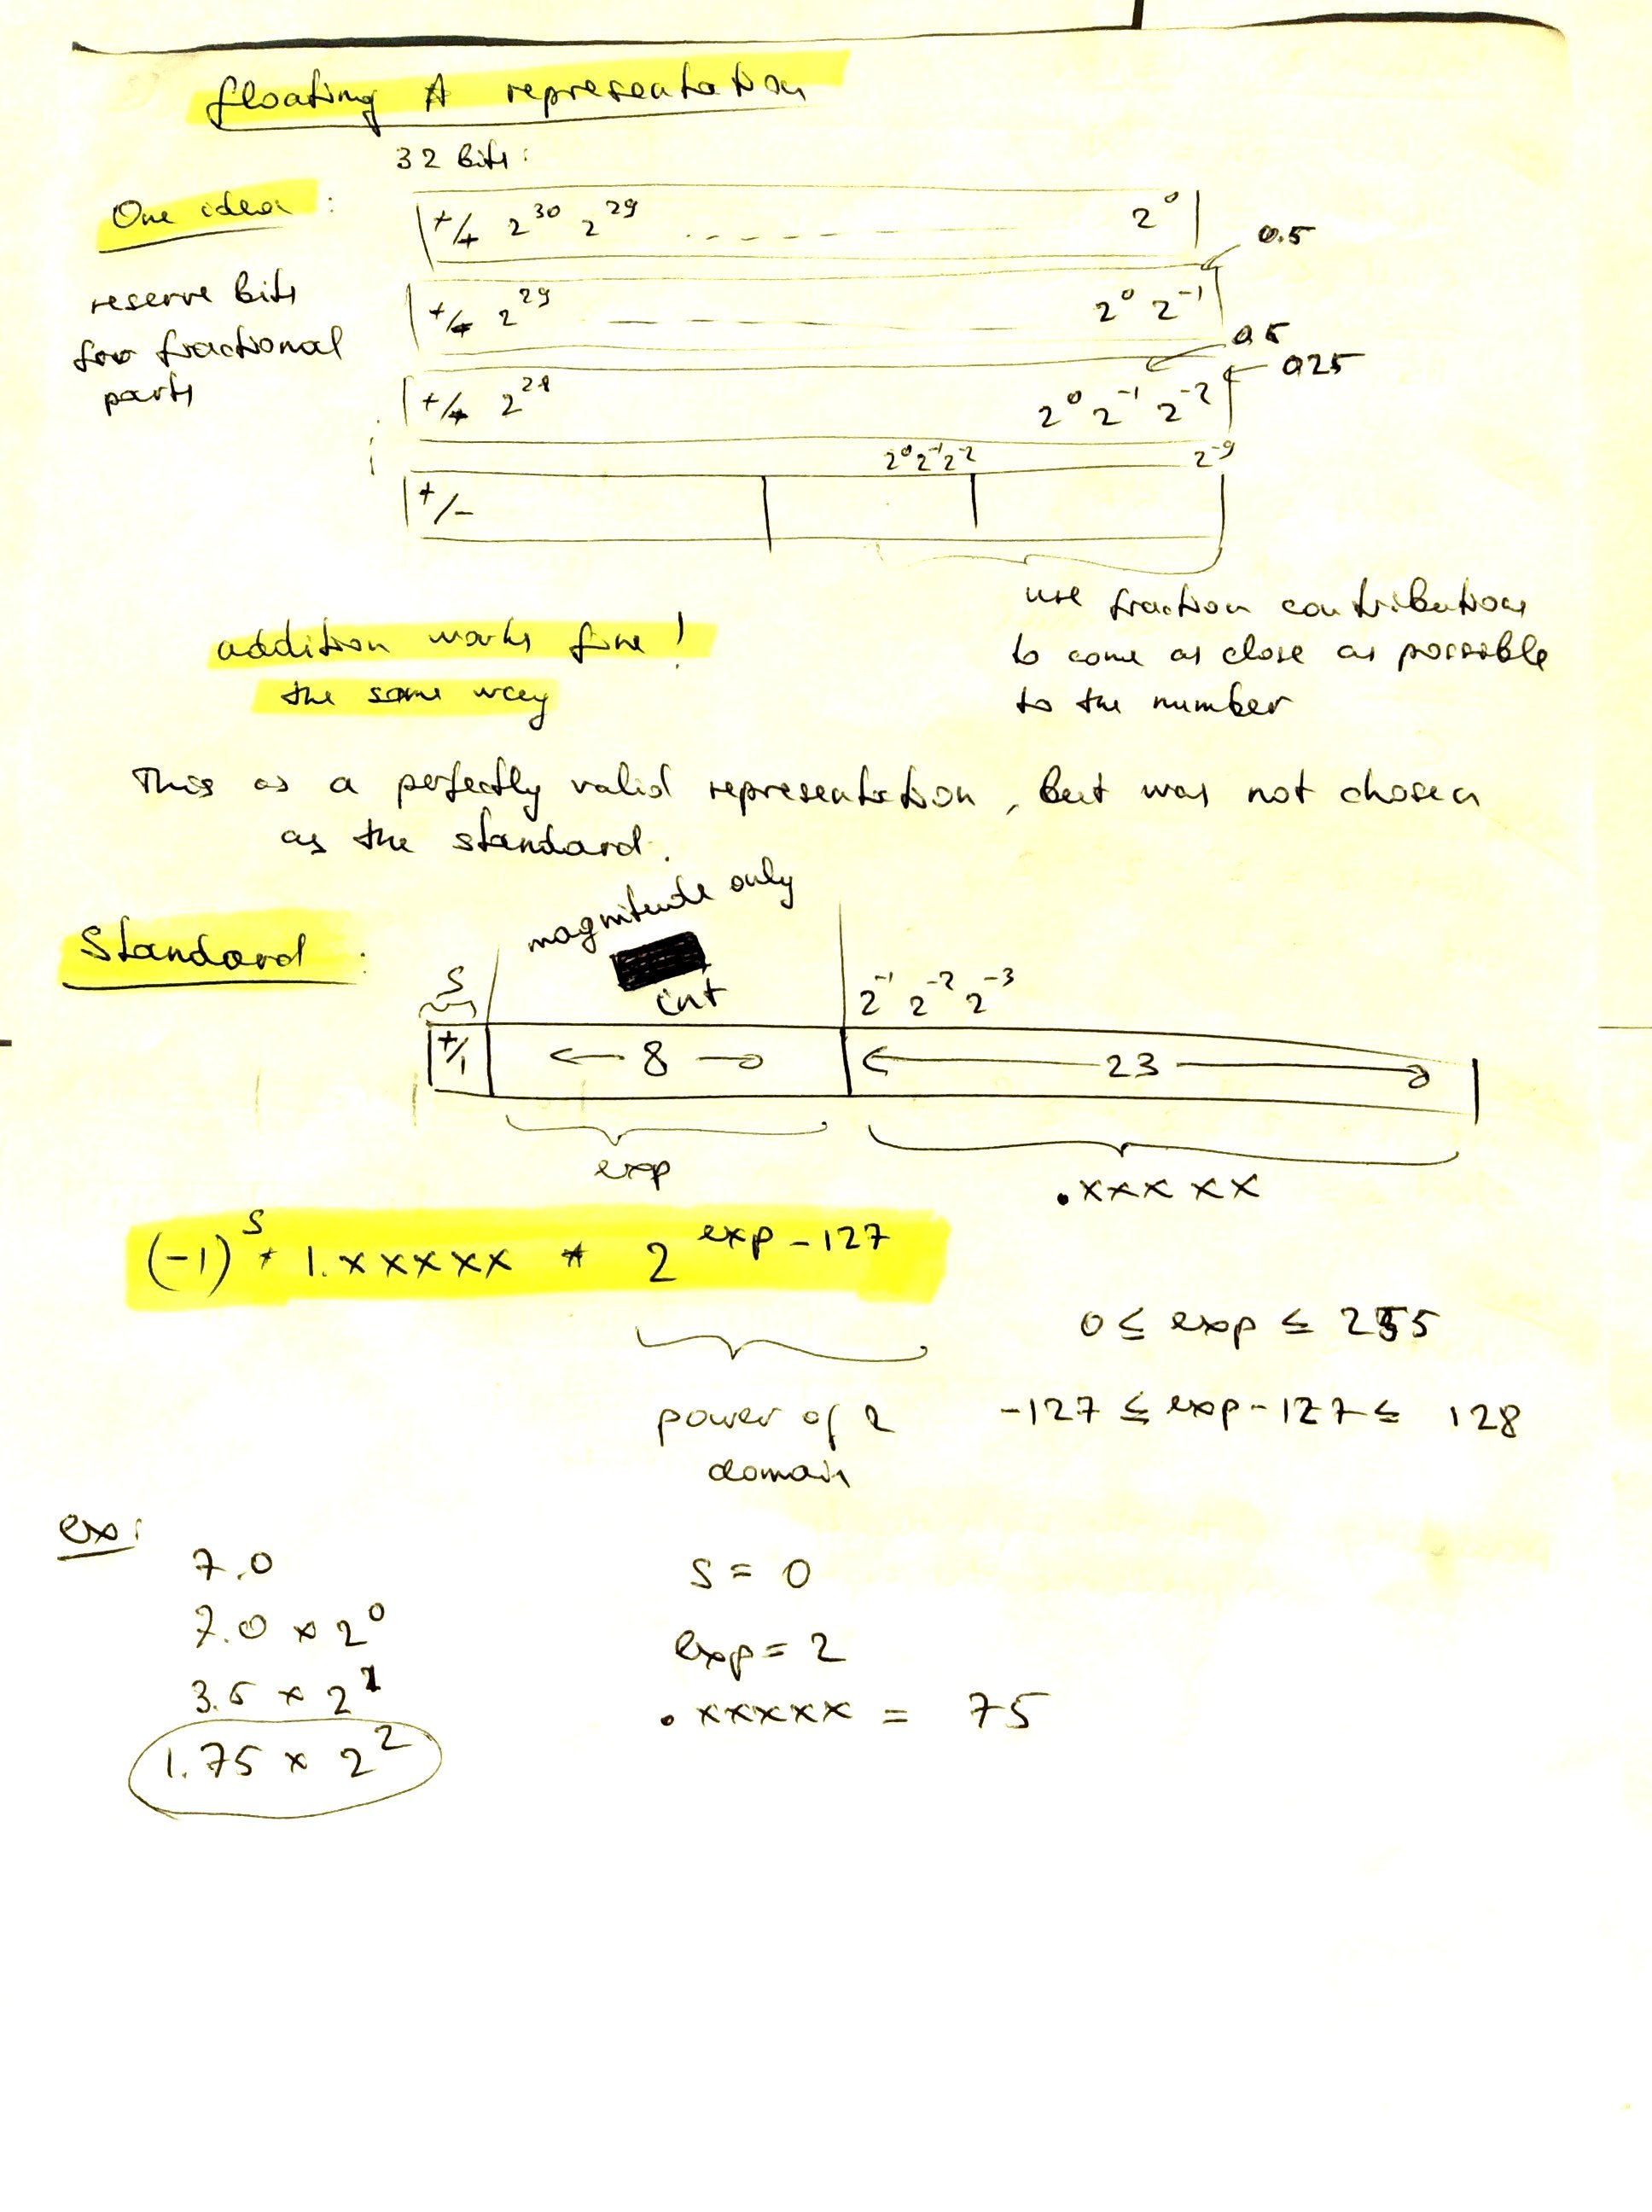 floating pt representation
32 bits:
One idea :
+/- 2^30 2^29 ------ 2^0
0.5
reserve bits
for fractional
parts
+/- 2^29 ------ 2^0 2^-1
0.5
0.25
+/- 2^28 2^0 2^-1 2^-2
2^0 2^-1 2^-2 2^-9
+/-
use fraction contributions
to come as close as possible
to the number
addition works fine!
the same way
This is a perfectly valid representation, but was not chosen
as the standard.
Standard :
magnitude only
int
S
2^-1 2^-2 2^-3
+/- <— 8 —> <— 23 —>
exp
.xxx xx
(-1)^S * 1.xxxxx * 2^exp-127
0 ≤ exp ≤ 255
power of 2
domain
-127 ≤ exp-127 ≤ 128
ex:
7.0
7.0 x 2^0
3.5 x 2^1
1.75 x 2^2
S = 0
exp = 2
.xxxxx = 75